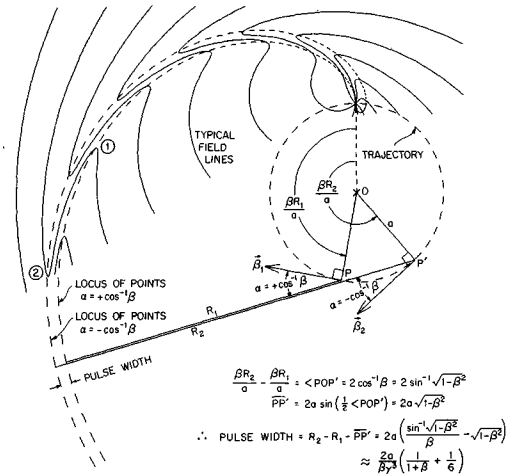 ①
TYPICAL
FIELD
LINES
TRAJECTORY
βR₁
a
βR₂
a
O
a
②
β⃗₁
P
P'
α=+cos⁻¹β
α=-cos⁻¹β
β⃗₂
LOCUS OF POINTS
α=+cos⁻¹β
LOCUS OF POINTS
α=-cos⁻¹β
R₁
R₂
PULSE WIDTH
βR₂/a - βR₁/a = <POP' = 2 cos⁻¹β = 2 sin⁻¹√1-β²
PP' = 2a sin(½ <POP') = 2a √1-β²
∴ PULSE WIDTH = R₂-R₁-PP' = 2a(sin⁻¹√1-β²/β - √1-β²)
≈ 2a/βγ³ (1/1+β + 1/6)